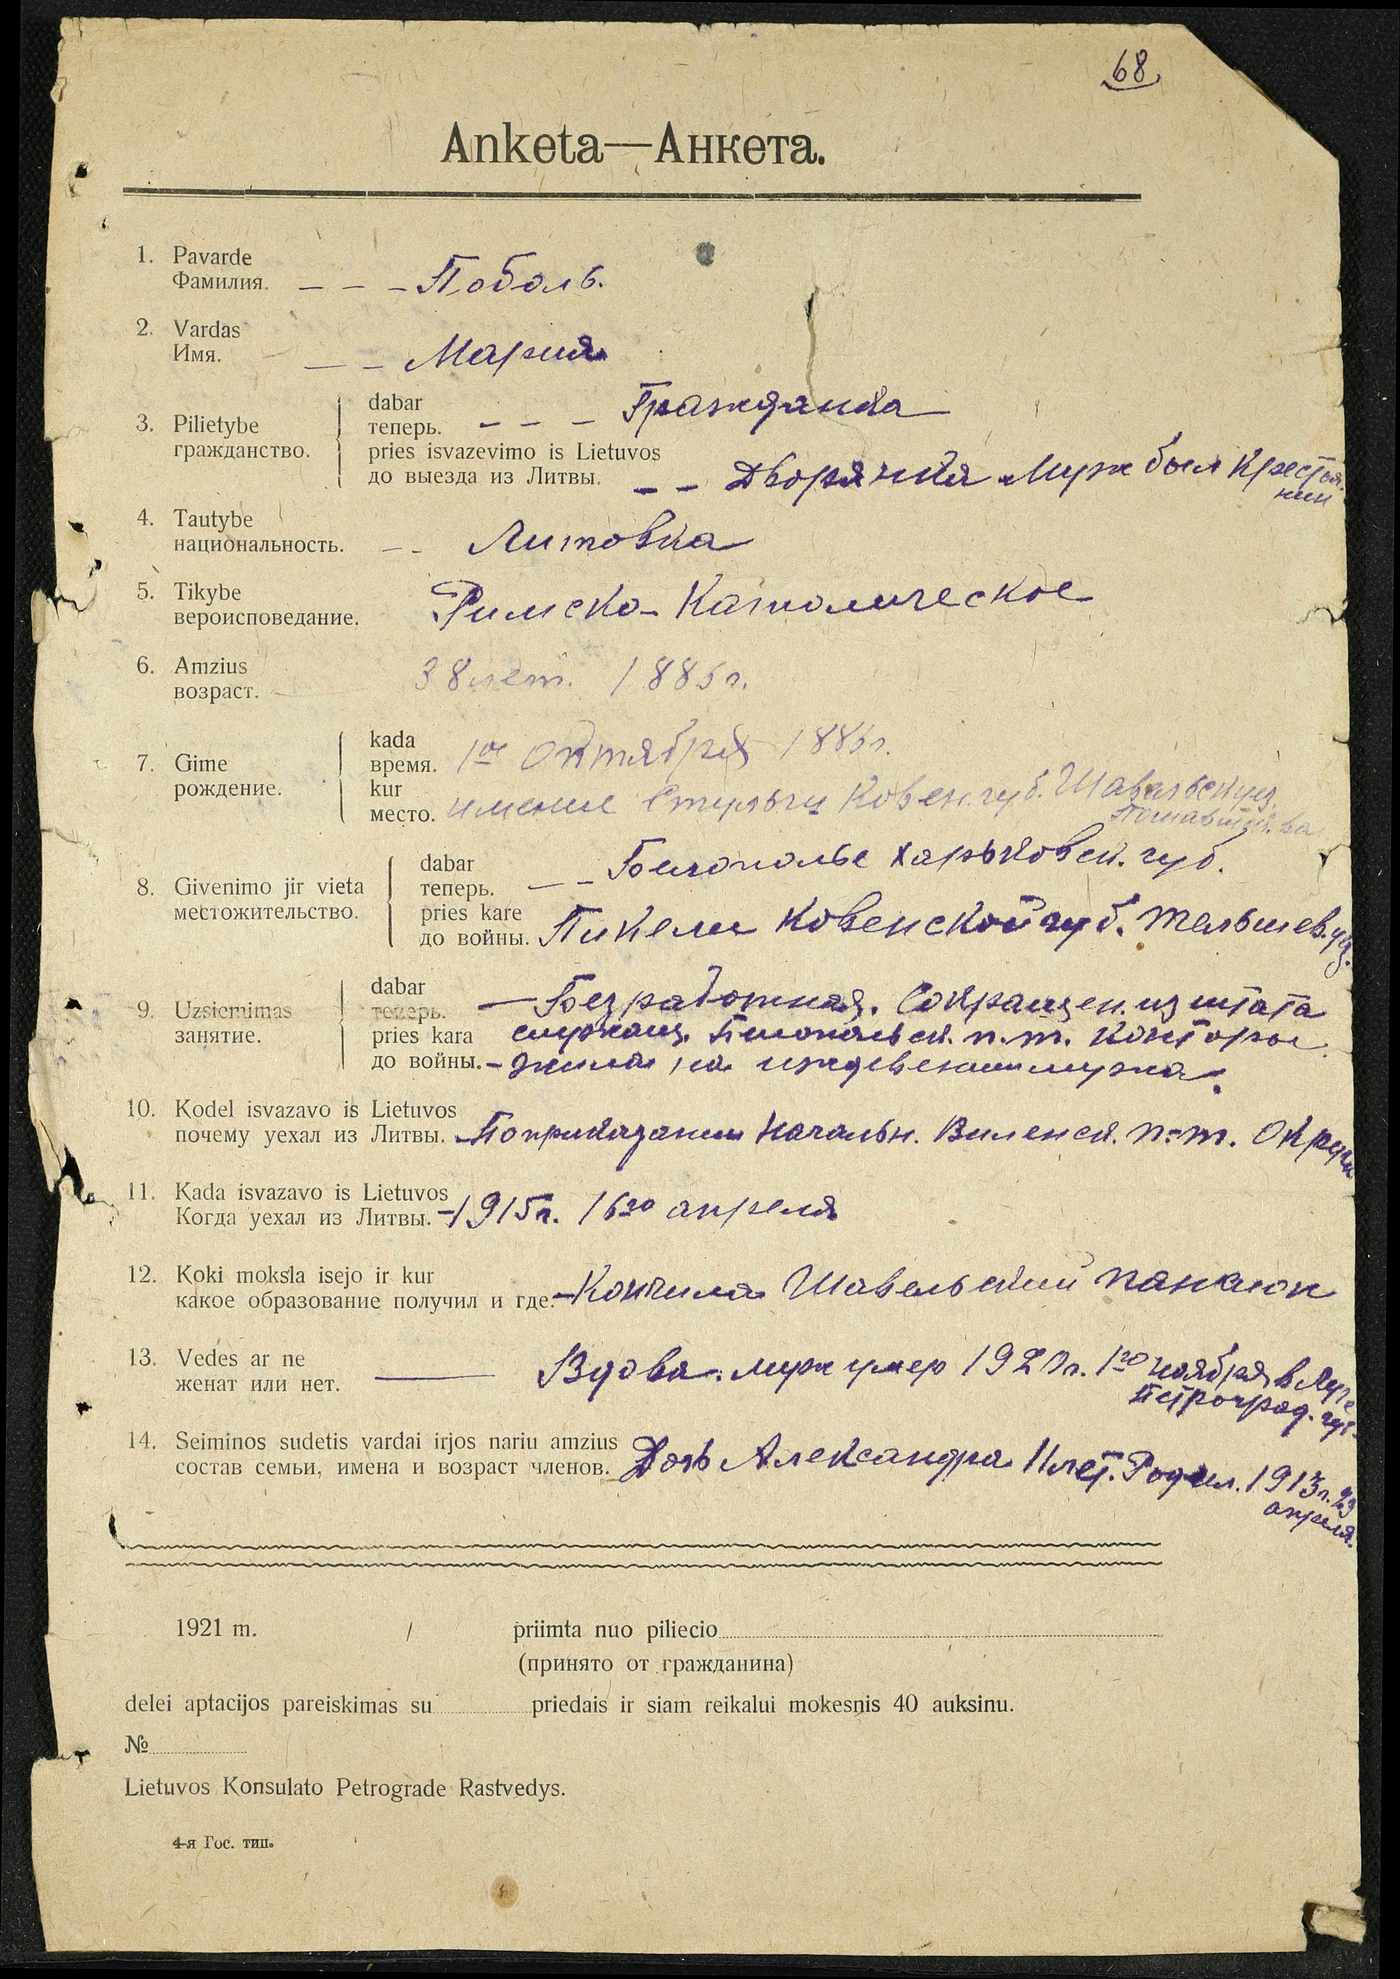 68
Anketa—Анкета.
1. Pavarde
Фамилия. — — — Поболь.
2. Vardas
Имя. — — Мария
3. Pilietybe
гражданство.
dabar
теперь. — — — Гражданка
pries isvazevimo is Lietuvos
до выезда из Литвы. — — Дворянка Муж был Крестья-
нин
4. Tautybe
национальность. — — Литовка
5. Tikybe
вероисповедание. Римско-Католическое
6. Amzius
возраст. 38 лет. 1885 г.
7. Gime
рождение.
kada
время. 1го Октября 1885 г.
kur
место. имение Ковен. губ. Шавельск уез.
8. Givenimo jir vieta
местожительство.
dabar
теперь. — — Белополье Харьковск. губ.
pries kare
до войны. Пикели Ковенской губ. Тельшев. уз.
9. Uzsiemimas
занятие.
dabar
теперь. — Безработная. Сокращен. из штата
служащ. Белопольск. п. т. Конторы.
pries kara
до войны. – Жила на иждевении мужа.
10. Kodel isvazavo is Lietuvos
почему уехал из Литвы. – По приказанию Начальн. Виленск. п-т. Округа
11. Kada isvazavo is Lietuvos
Когда уехал из Литвы. – 1915 г. 16го апреля
12. Koki moksla isejo ir kur
какое образование получил и где. – Кончила Шавельский пансион
13. Vedes ar ne
женат или нет. — Вдова. муж умер 1920 г. 1го ноября в Луге
Петроград. губ.
14. Seiminos sudetis vardai irjos nariu amzius
состав семьи, имена и возраст членов. Дочь Александра 11 лет. Родил. 1913 г. 23
апреля.
1921 m. priimta nuo piliecio
(принято от гражданина)
delei aptacijos pareiskimas su priedais ir siam reikalui mokesnis 40 auksinu.
№
Lietuvos Konsulato Petrograde Rastvedys.
4-я Гос. тип.